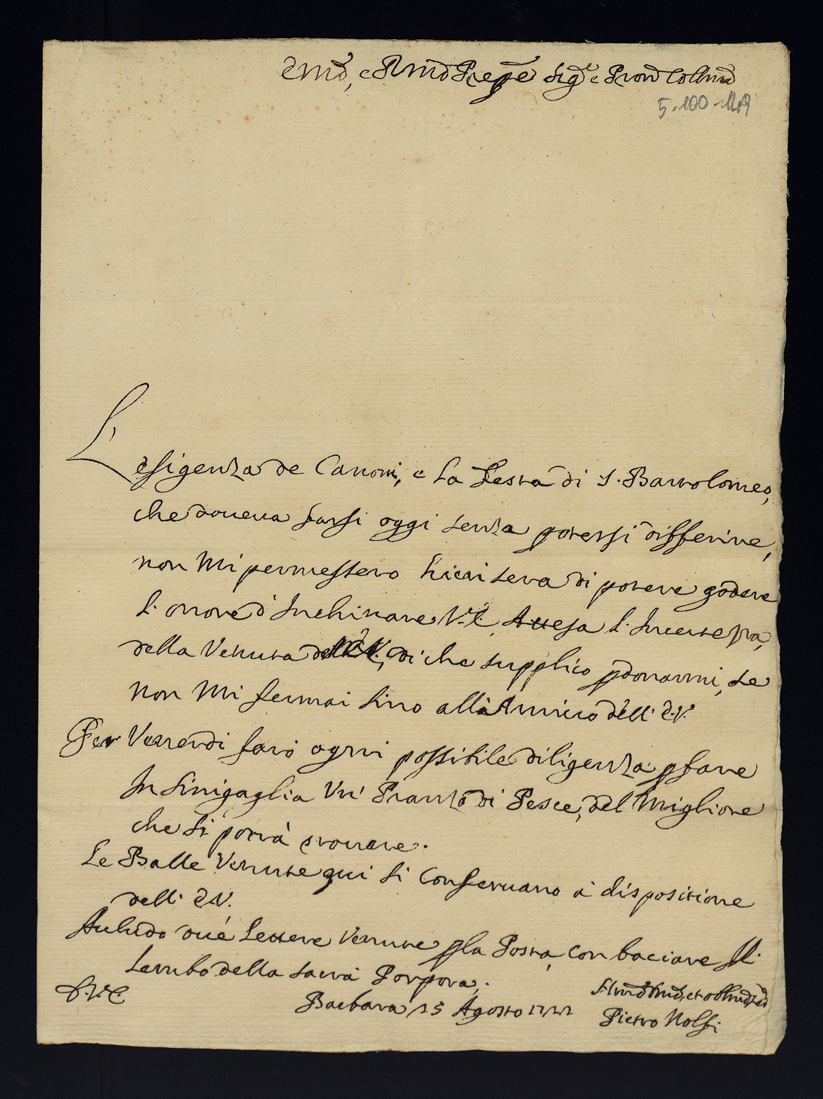 Emõ, e Rmõ Prẽpe Sigr̃ e Pron̄ Collmõ
5-100-149
L'esigenza de Canoni, e la Festa di S. Bartolomeo,
che doueua farsi oggi senza potersi differire,
non mi permessero hieri sera di potere godere
l'onore d'Inchinare V.E. Attesa l'Incertezza,
della Venuta dell'E.V., di che supplico pdonarmi, se
non mi fermai sino all'Arriuo dell'E.V.
Per Venerdi farò ogni possibile diligenza p fare
In Sinigaglia Vn' Pranzo di Pesce, del Migliore
che si potrà trouare.
Le Balle Venute qui si conseruano à disposizione
dell'E.V.
Acludo due lettere Venute p la Posta, con baciare il
Lembo della Sacra Porpora.
D.V.E.
Barbara 25 Agosto
Pietro Nolfi